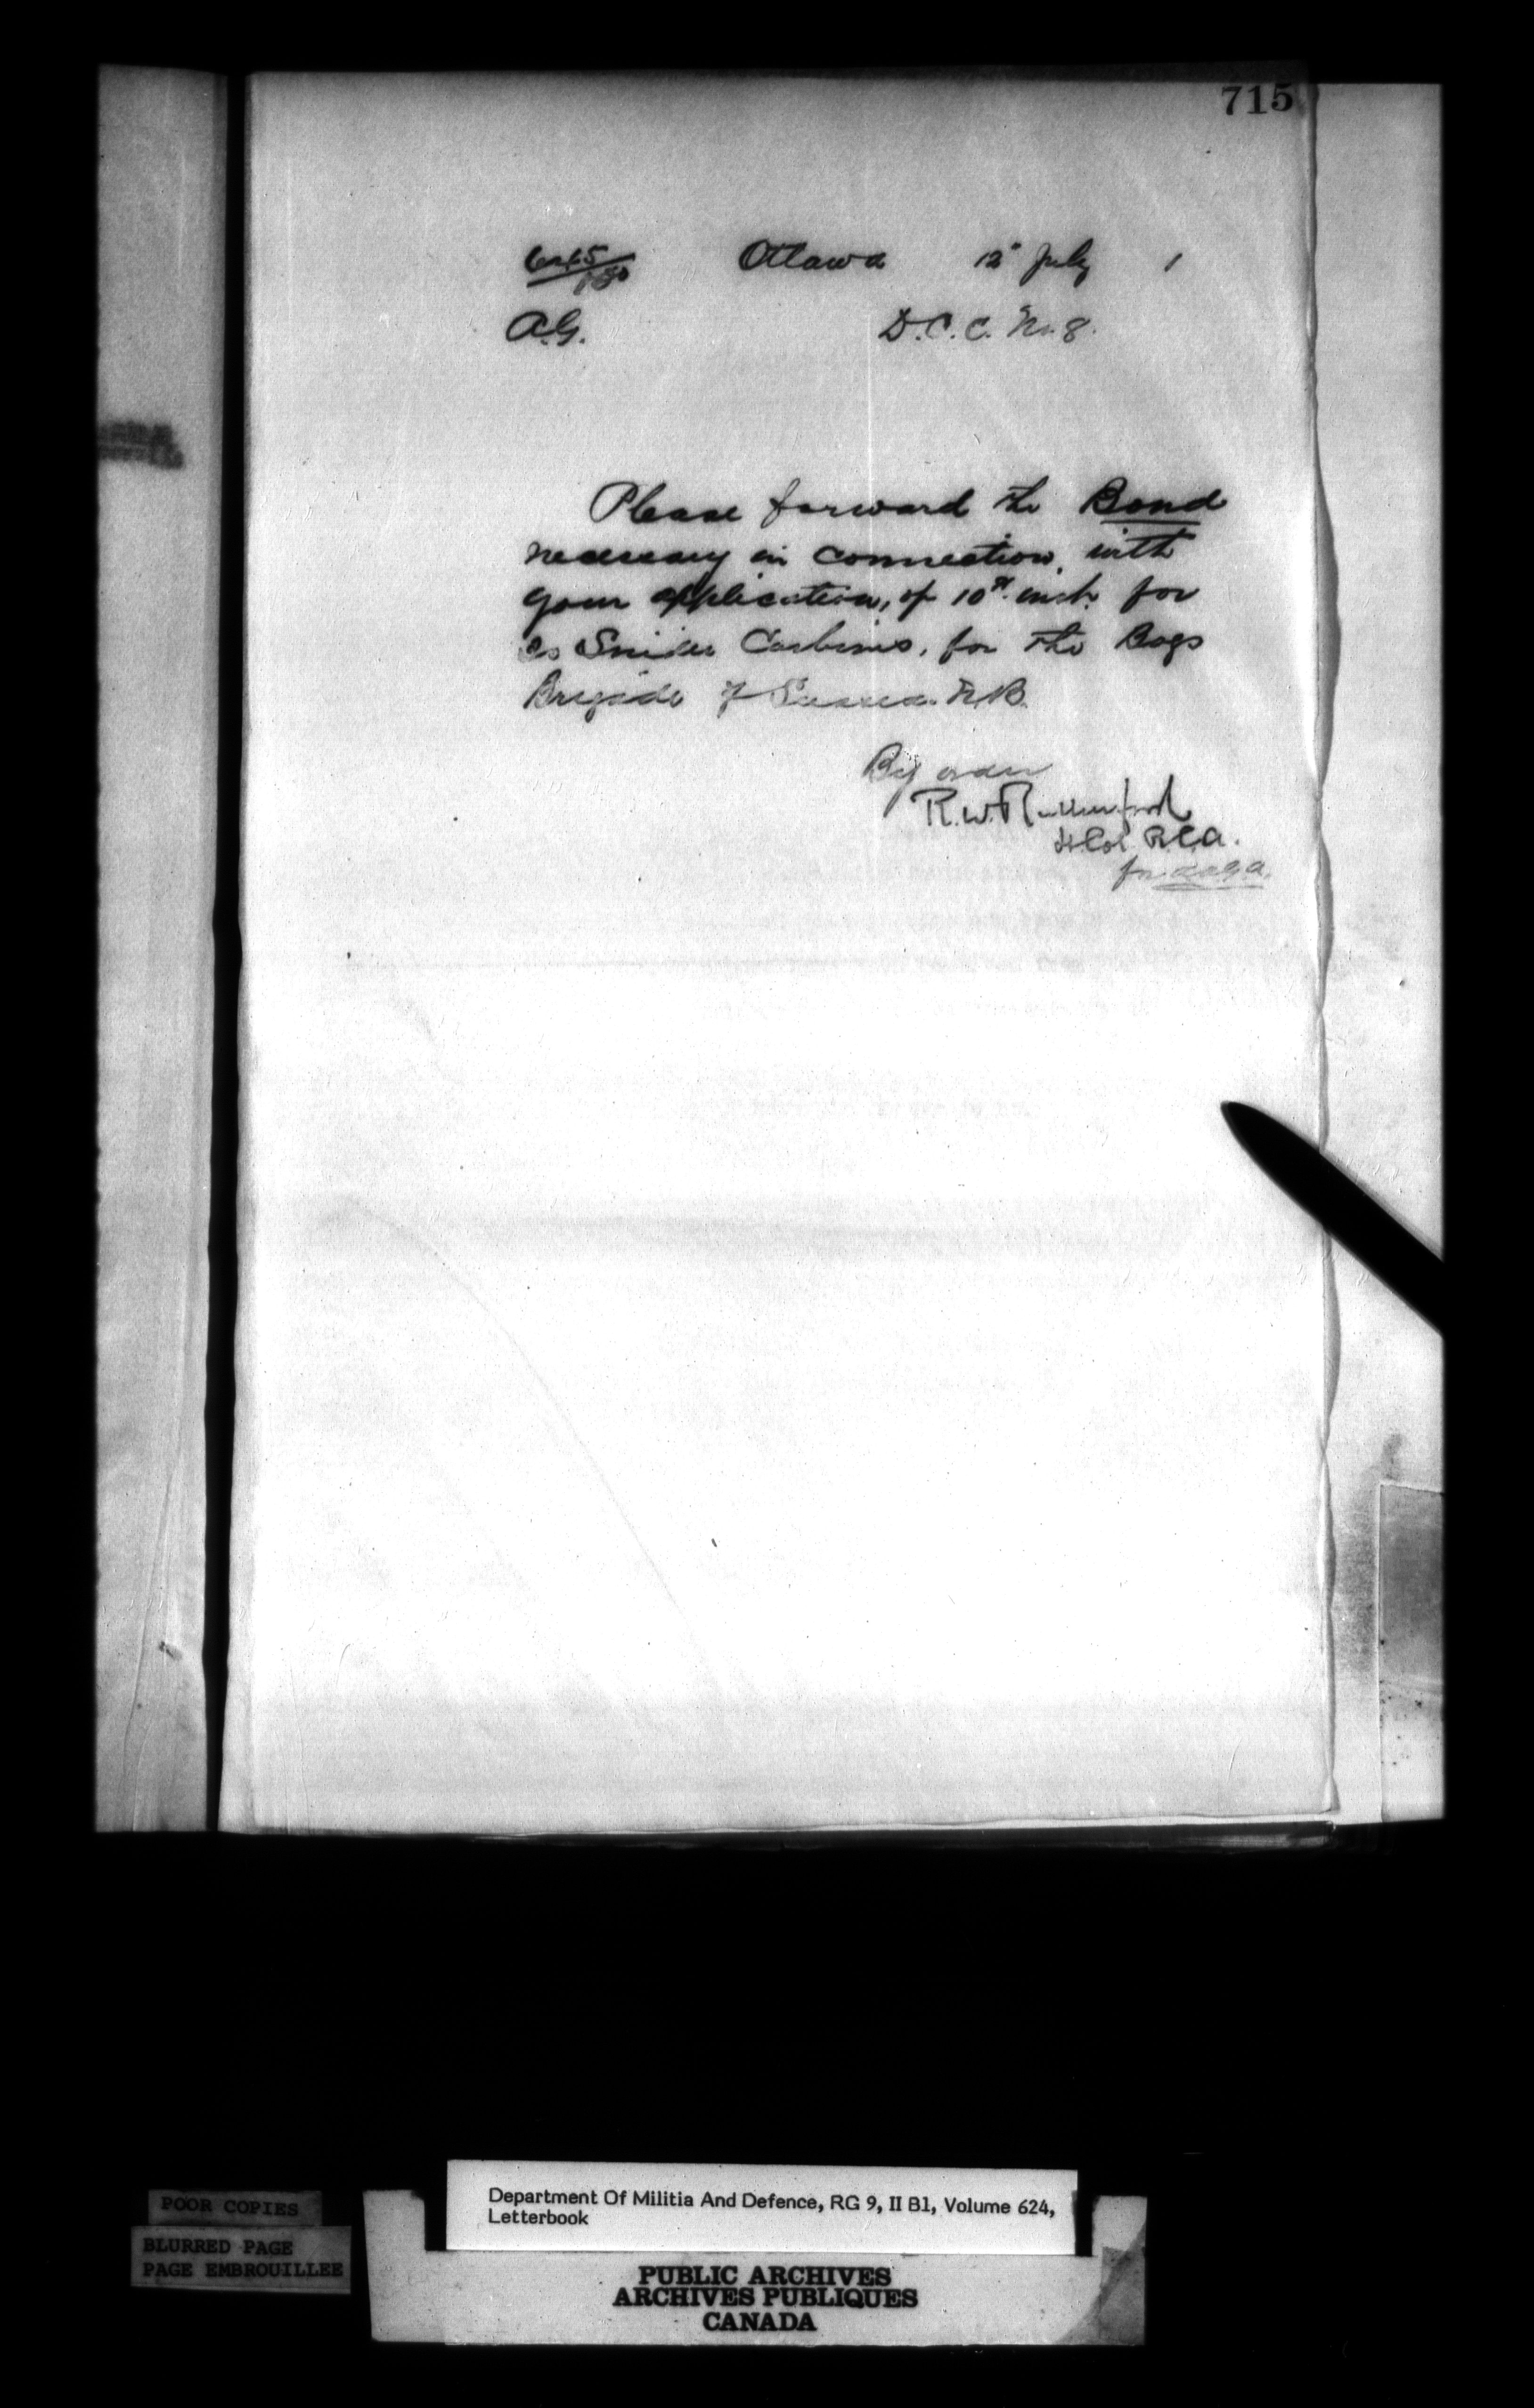 715
Ottawa 12" July 1
A.G. D.C.C. No. 8.
Please forward the Bond
necessary in connection, with
your application, of 10th inst. for
Snider Carbines, for the Boys
Brigade of Sussex. N.B.
By order
R.W. Rutherford
Lt Col. R.C.A.
for
POOR COPIES
BLURRED PAGE
PAGE EMBROUILLEE
Department Of Militia And Defence, RG 9, II B1, Volume 624,
Letterbook
PUBLIC ARCHIVES
ARCHIVES PUBLIQUES
CANADA